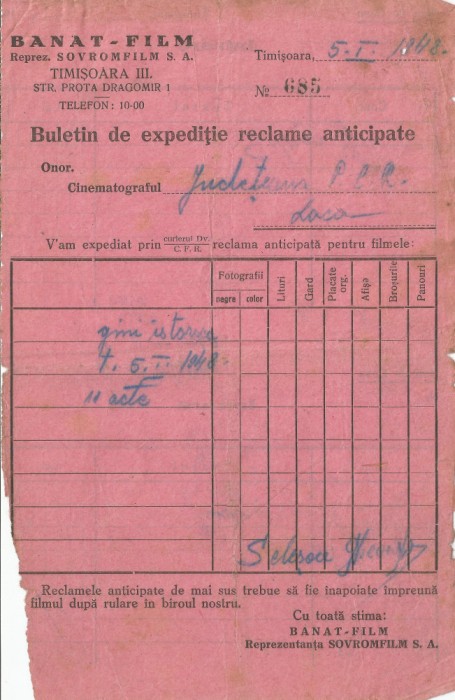 BANAT-FILM
Reprez. SOVROMFILM S. A.
TIMIȘOARA III.
STR. PROTA DRAGOMIR 1
TELEFON: 10-00
Timișoara, 5.I. 1948.
№ 685
Buletin de expediție reclame anticipate
Onor.
Cinematograful Județeana P.C.R.
V'am expediat prin curierul Dv. / C. F. R. reclama anticipată pentru filmele:
Fotografii
negre color Lituri Gard Placate org. Afișa Broșurile Panouri
5.I. 1948
11 acte
Reclamele anticipate de mai sus trebue să fie inapoiate împreună
filmul după rulare in biroul nostru.
Cu toată stima:
BANAT-FILM
Reprezentanța SOVROMFILM S. A.